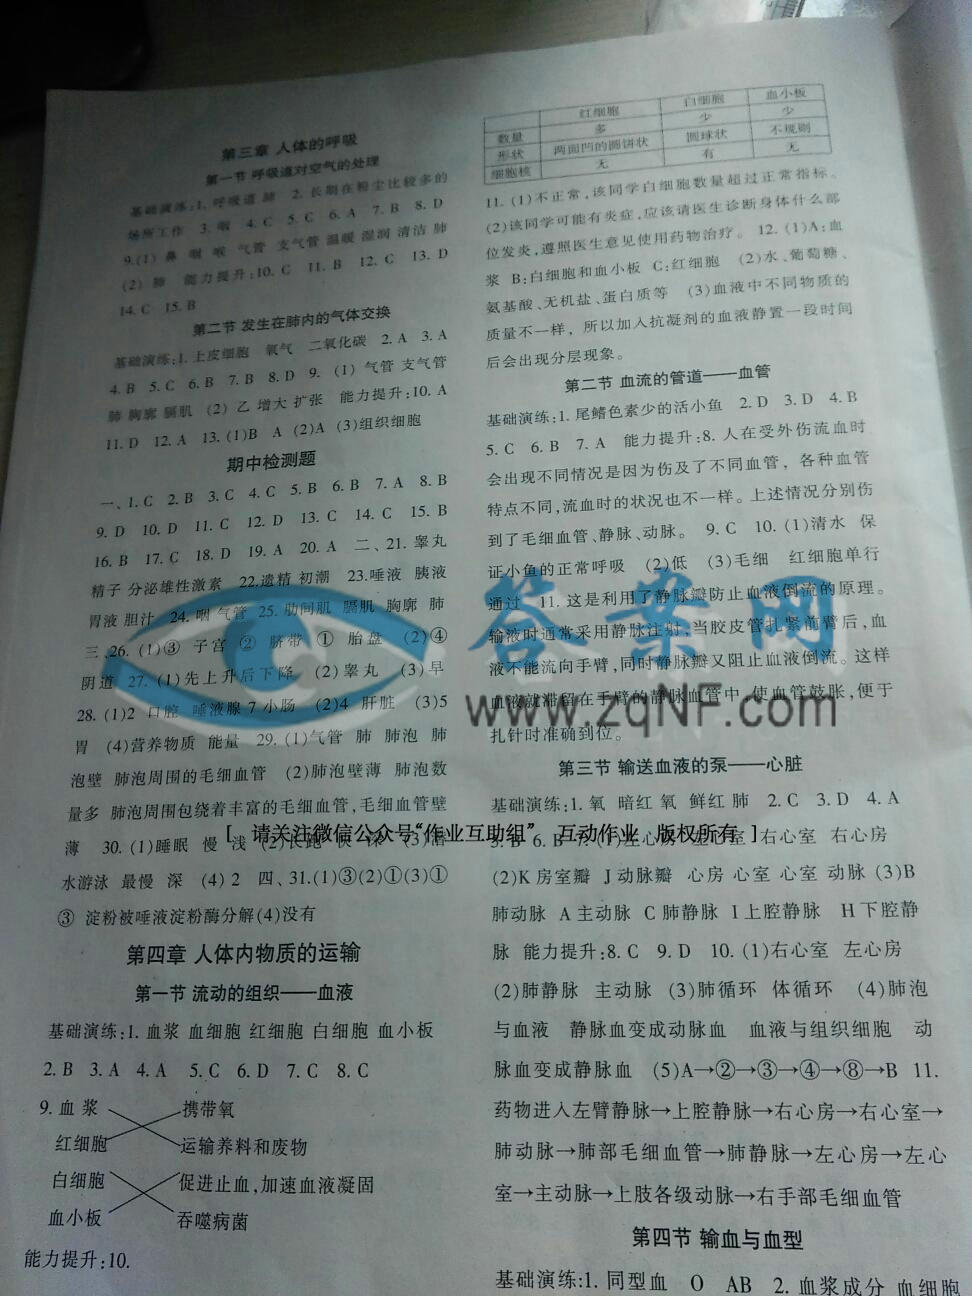 第三章 人体的呼吸
第一节 呼吸道对空气的处理
基础演练:1. 呼吸道 肺 2. 长期在粉尘比较多的
场所工作 3. 咽 4. C 5. C 6. A 7. B 8. D
9.(1) 鼻 咽 喉 气管 支气管 温暖 湿润 清洁 肺
(2) 肺 能力提升:10. C 11. B 12. C 13. D
14. C 15. B
第二节 发生在肺内的气体交换
基础演练:1. 上皮细胞 氧气 二氧化碳 2. A 3. A
4. B 5. C 6. B 7. B 8. D 9. (1) 气管 支气管
肺 胸廓 膈肌 (2) 乙 增大 扩张 能力提升:10. A
11. D 12. A 13. (1)B A (2)A (3)组织细胞
期中检测题
一、1. C 2. B 3. C 4. C 5. B 6. B 7. A 8. B
9. D 10. D 11. C 12. D 13. C 14. C 15. B
16. B 17. C 18. D 19. A 20. A 二、21. 睾丸
精子 分泌雄性激素 22.遗精 初潮 23.唾液 胰液
胃液 胆汁 24. 咽 气管 25. 肋间肌 膈肌 胸廓 肺
三、26. (1)③ 子宫 ② 脐带 ① 胎盘 (2)④
阴道 27. (1)先上升后下降 (2)睾丸 (3)早
28. (1)2 口腔 唾液腺 7 小肠 (2)4 肝脏 (3)5
胃 (4)营养物质 能量 29. (1)气管 肺 肺泡 肺
泡壁 肺泡周围的毛细血管 (2)肺泡壁薄 肺泡数
量多 肺泡周围包绕着丰富的毛细血管,毛细血管壁
薄 30. (1)睡眠 慢 浅 (2)长跑 快 深 (3)潜
水游泳 最慢 深 (4) 2 四、31.(1)③(2)①(3)①
③ 淀粉被唾液淀粉酶分解(4)没有
第四章 人体内物质的运输
第一节 流动的组织——血液
基础演练:1. 血浆 血细胞 红细胞 白细胞 血小板
2. B 3. A 4. A 5. C 6. D 7. C 8. C
9. 血浆 携带氧
红细胞 运输养料和废物
白细胞 促进止血,加速血液凝固
血小板 吞噬病菌
能力提升:10.
红细胞 白细胞 血小板
数量 多 少 少
形状 两面凹的圆饼状 圆球状 不规则
细胞核 无 有 无
11. (1)不正常,该同学白细胞数量超过正常指标。
(2)该同学可能有炎症,应该请医生诊断身体什么部
位发炎,遵照医生意见使用药物治疗。 12. (1)A:血
浆 B:白细胞和血小板 C:红细胞 (2)水、葡萄糖、
氨基酸、无机盐、蛋白质等 (3)血液中不同物质的
质量不一样, 所以加入抗凝剂的血液静置一段时间
后会出现分层现象。
第二节 血流的管道——血管
基础演练:1. 尾鳍色素少的活小鱼 2. D 3. D 4. B
5. C 6. B 7. A 能力提升:8. 人在受外伤流血时
会出现不同情况是因为伤及了不同血管, 各种血管
特点不同,流血时的状况也不一样。上述情况分别伤
到了毛细血管、静脉、动脉。 9. C 10. (1)清水 保
证小鱼的正常呼吸 (2)低 (3)毛细 红细胞单行
通过 11. 这是利用了静脉瓣防止血液倒流的原理。
输液时通常采用静脉注射,当胶皮管扎紧前臂后,血
液不能流向手臂,同时静脉瓣又阻止血液倒流。这样
血液就滞留在手臂的静脉血管中,使血管鼓胀,便于
扎针时准确到位。
第三节 输送血液的泵——心脏
基础演练:1. 氧 暗红 氧 鲜红 肺 2. C 3. D 4. A
5. B 6. B 7. (1)左心房 左心室 右心室 右心房
(2)K 房室瓣 J 动脉瓣 心房 心室 心室 动脉 (3)B
肺动脉 A 主动脉 C 肺静脉 I 上腔静脉 H 下腔静
脉 能力提升:8. C 9. D 10. (1)右心室 左心房
(2)肺静脉 主动脉 (3)肺循环 体循环 (4)肺泡
与血液 静脉血变成动脉血 血液与组织细胞 动
脉血变成静脉血 (5)A→②→③→④→⑧→B 11.
药物进入左臂静脉→上腔静脉→右心房→右心室→
肺动脉→肺部毛细血管→肺静脉→左心房→左心
室→主动脉→上肢各级动脉→右手部毛细血管
第四节 输血与血型
基础演练:1. 同型血 O AB 2. 血浆成分 血细胞
答案网
www.zqNF.com
[ 请关注微信公众号“作业互助组” 互动作业 版权所有 ]